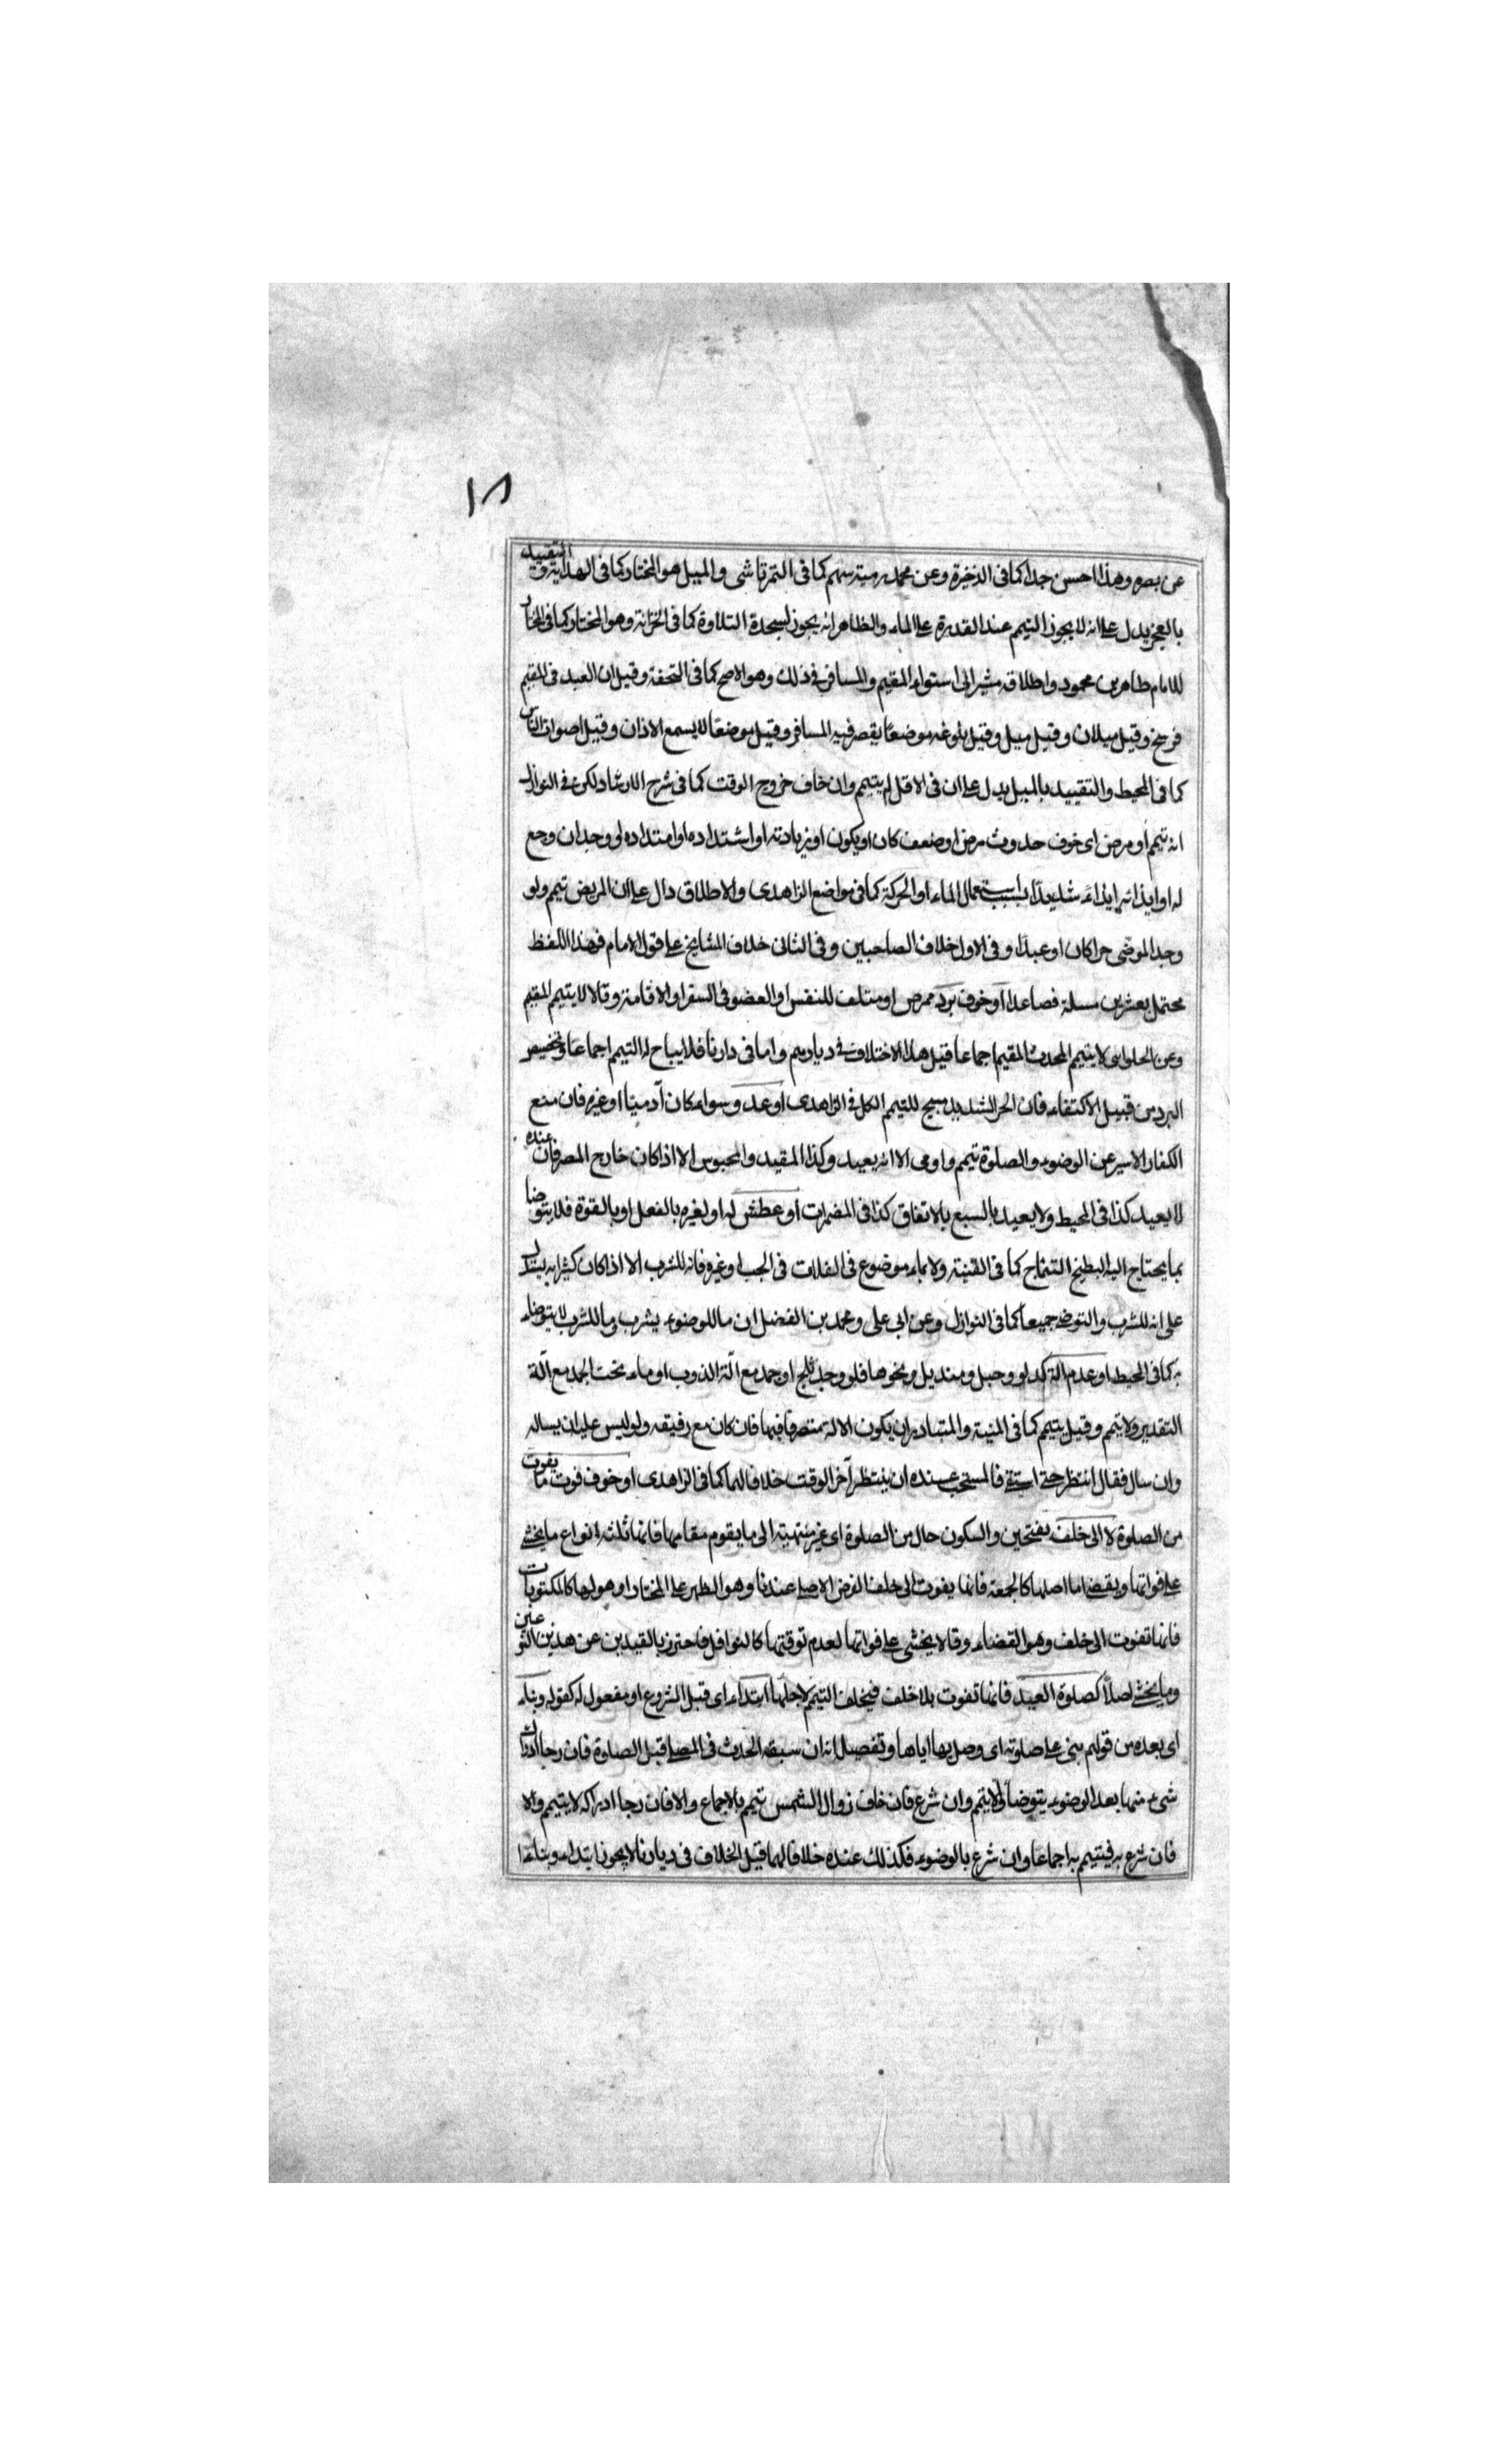 ١٨
عن بصره وهذا احسن جدا كما فى الذخيرة وعن محمد رمية سهم كما فى التمرتاشى والميل هو المختار كما فى الهداية والتقييد
بالعجز يدل على انه لا يجوز التيمم عند القدرة على الماء والظاهر انه يجوز لسجدة التلاوة كما فى الخزانة وهو المختار كما فى المختار
للامام طاهر بن محمود واطلاقه مشير الى استواء المقيم والمسافر فى ذلك وهو الاصح كما فى التحفة وقيل ان البعد فى المقيم
فرسخ وقيل ميلان وقيل ميل وقيل بلوغه موضعا يقصر فيه المسافر وقيل موضعا لا يسمع الاذان وقيل اصوات الناس
كما فى المحيط والتقييد بالميل يدل على ان فى الاقل لم يتيمم وان خاف خروج الوقت كما فى شرح الارشاد لكن فى النوازل
انه تيمم او مرض اى خوف حدوث مرض او ضعف كان او يكون او زيادته او اشتداده او امتداده او وجدان وجع
له او ايذائه ايذاء شديدا بسبب استعمال الماء او الحركة كما فى مواضع الزاهدى والاطلاق دال على ان المريض تيمم ولو
وجد الموضى حرا كان او عبدا وفى الاول خلاف الصاحبين وفى الثانى خلاف المشايخ على قول الامام فهذا اللفظ
محتمل بعشرين مسئلة فصاعدا او خوف برد ممرض او متلف للنفس او العضو فى السفر او الاقامة وقالا لا يتيمم المقيم
وعن الحلوانى لا يتيمم المحدث المقيم اجماعا قيل هذا الاختلاف فى ديارهم واما فى دارنا فلا يباح له التيمم اجماعا وتخصيص
البرد من قبيل الاكتفاء فان الحر الشديد مبيح للتيمم الكل فى الزاهدى او عدو سواء كان آدميا او غيره فان منع
الكفار الاسير عن الوضوء والصلوة تيمم واومى الا انه يعيد وكذا المقيد والمحبوس الا اذا كان خارج المصر فان عنده
لا يعيد كذا فى المحيط ولا يعيد بالسبع بالاتفاق كذا فى المضمرات او عطش له او لغيره بالفعل او بالقوة فلا يتوضا
بما يحتاج اليه البطيخ التفتاج كما فى القنية ولا بماء موضوع فى الفلات فى الجب او غيره فانه للشرب الا اذا كان كثيرا به يستدل
على انه للشرب والتوضى جميعا كما فى النوازل وعن ابى على ومحمد بن الفضل ان ما للوضوء يشرب وما للشرب لا يتوضاء
به كما فى المحيط او عدم الة كدلو وحبل ومنديل ونحوها فلو وجد ثلج او جمد مع آلة الذوب او ماء تحت الجمد مع آلة
التقدير ولا يتمم وقيل يتيمم كما فى المنية والمتبادر ان يكون الالة متصرفا فيها فان كان مع رفيقه ولو ليس عليه ان يساله
وان سال فقال انتظر حتى استقى فالمستحب عنده ان ينتظر آخر الوقت خلافا لهما كما فى الزاهدى او خوف فوت ما يفوت
من الصلوة لا الى خلف بفتحين والسكون حال من الصلوة اى غير منتهية الى ما يقوم مقامها فانها ثلثة انواع ما يخشى
على فواتها ويقضى اما اصلها كالجمعة فانها يفوت الى خلف الفرض الاصلى عندنا وهو الظهر على المختار او هو لها كالمكتوبات
فانها تفوت الى خلف وهو القضاء وقالا يخشى على فواتها لعدم توقتها كالنوافل فاحترز بالقيدين عن هذين النوعين
وما يخشى اصلا كصلوة العيد فانها تفوت بلا خلف فيخلف التيمم لاجلها ابتداء اى قبل الشروع او مفعول له كقوله وبناء
اى بعده من قولهم بنى على صلوته اى وصل بها اياها وتفصيل انه ان سبقه الحدث فى المصلى قبل الصلاة فان رجا ادراك
شىء منها بعد الوضوء يتوضا ولا يتمم وان شرع فان خاف زوال الشمس تيمم بالاجماع والا فان رجا ادراكه لا يتيمم والا
فان شرع به فيتيمم به اجماعا وان شرع بالوضوء فكذلك عنده خلافا لهما قيل الخلاف فى ديارنا لا يجوز ابتداء وبناء